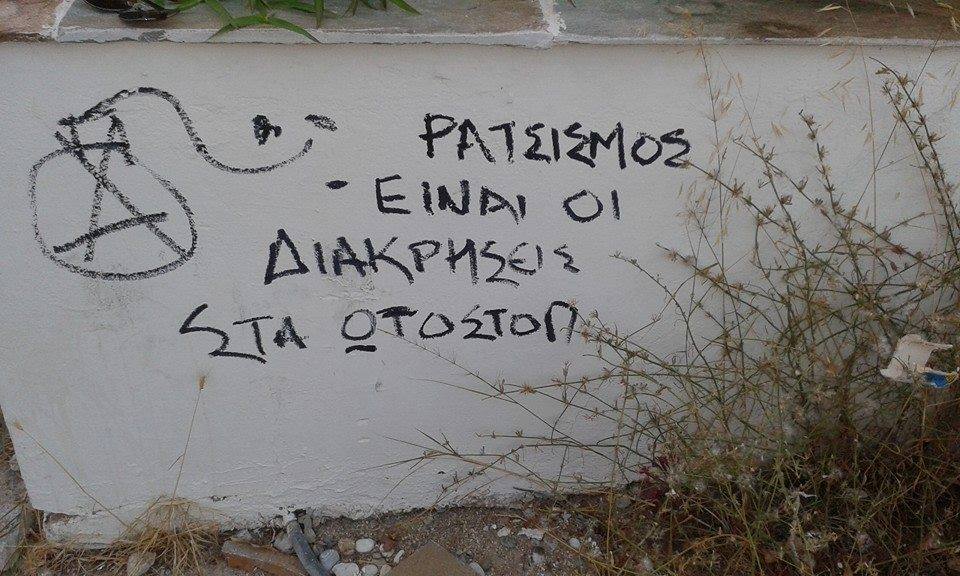 ΡΑΤΣΙΣΜΟΣ
- ΕΙΝΑΙ ΟΙ
ΔΙΑΚΡΗΣΕΙΣ
ΣΤΑ ΩΤΟΣΤΟΠ